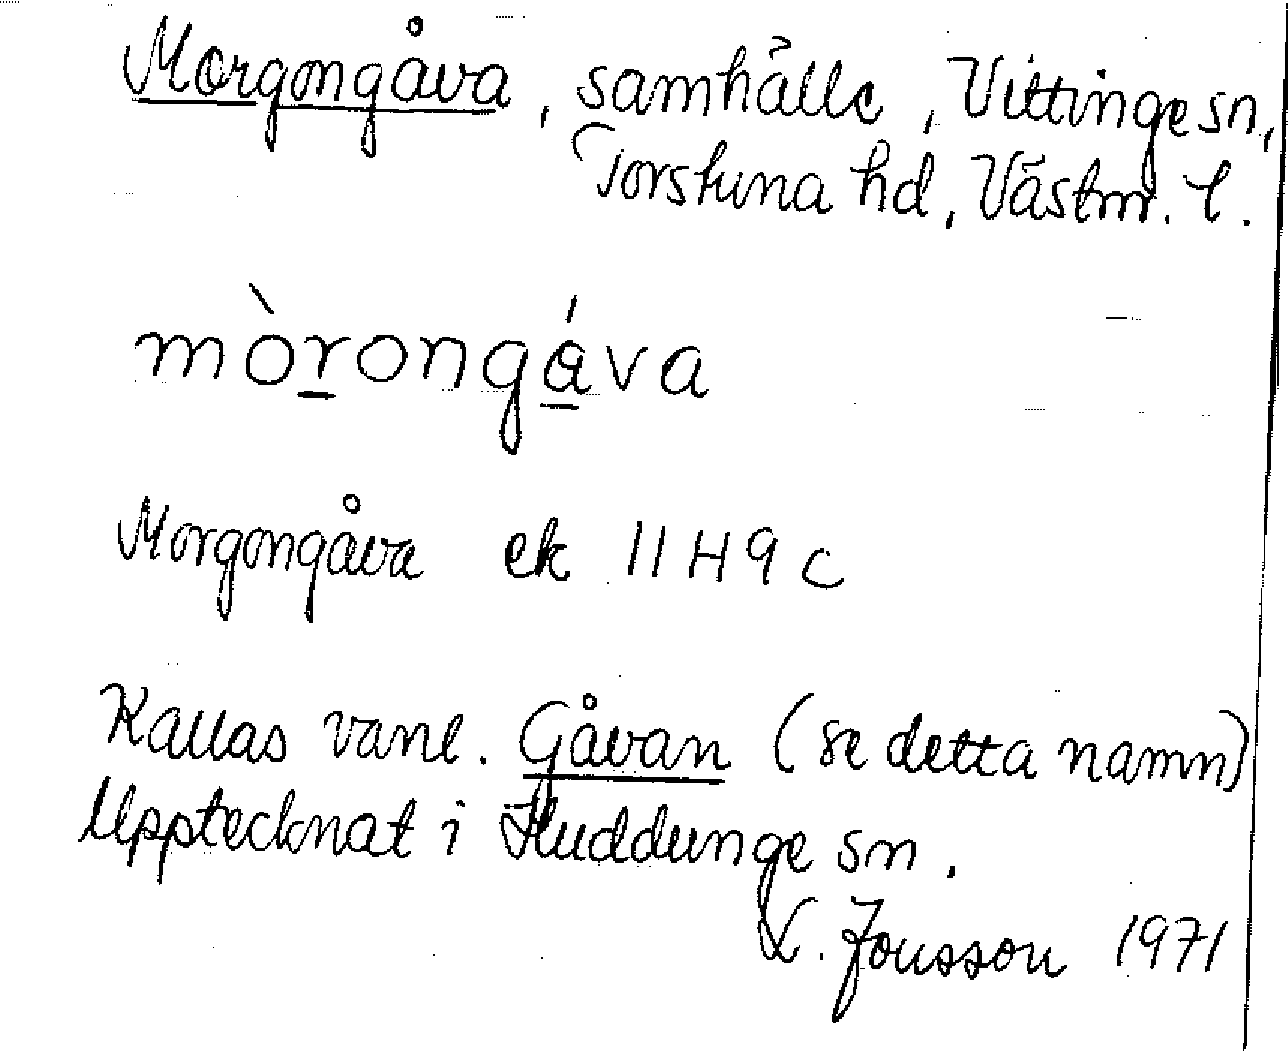 Morgongåva, samhälle, Vittinge sn,
Torstuna hd, Västm. l.
mòrongáva
Morgongåva ek 11H9c
Kallas vanl. Gåvan (se detta namn)
Upptecknat i Huddunge sn.
L. Jonsson 1971